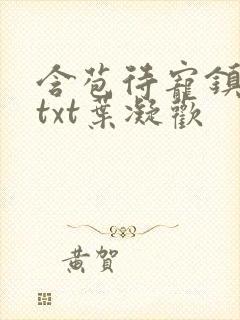 含苞待寵鎮
txt葉凝歡
黃賀